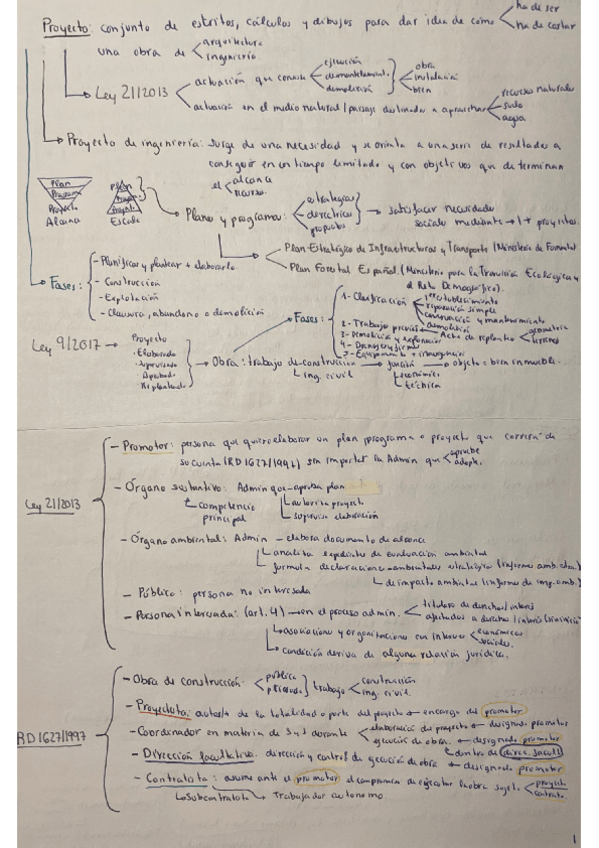 ha de ser
Proyecto: conjunto de escritos, cálculos y dibujos para dar idea de como
ha de costar
una obra de arquitectura
ingeniería
ejecución obra
Ley 21/2013 actuación que consiste desmantelamiento instalación
demolición bien
recursos naturales
actuación en el medio natural/paisaje destinadas a aprovechar suelo
agua
Proyecto de ingeniería: surge de una necesidad y se orienta a una serie de resultados a
conseguir en un tiempo limitado y con objetivos que determinan
el alcance
Plan Plan
Programa Programa
Proyecto Proyecto
Alcance Escala
estrategias
Planes y programas: directrices satisfacer necesidades
propuestas sociales mediante 1 + proyectos.
Plan Estratégico de Infraestructuras y Transporte (Ministerio de Fomento)
Plan Forestal Español (Ministerio para la Transición Ecológica y
el Reto Demográfico).
Fases: - Planificar y plantear + elaborarlo
- Construcción
- Explotación
- Clausura, abandono o demolición
Fases: 1- Clasificación restablecimiento
reparación simple
conservación y mantenimiento
demolición
2- Trabajos previos Acta de replanteo geometría
terrenos
3- Demolición y explanación
4- Drenaje y firmes
5- Equipamiento + integración
Ley 9/2017 Proyecto
· Elaborado
· Supervisado
· Aprobado
· Replanteado
Obra: trabajo de construcción función objeto: bien inmueble.
ing. civil económica
técnica
Ley 21/2013
- Promotor: persona que quiere elaborar un plan, programa o proyecto que correrá de
su cuenta (RD 1627/1997) sin importar la Admin que apruebe
adopte.
- Órgano sustantivo: Admin que aprueba plan
competencia autoriza proyecto
principal supervisa elaboración
- Órgano ambiental: Admin - elabora documento de alcance
analiza expedientes de evaluación ambiental
formula declaraciones ambientales estratégica (informe amb. estra.)
de impacto ambiental (informe de imp. amb.)
- Público: persona no interesada
- Persona interesada: (art. 4) en el proceso admin. titulares de derechos/interés
afectados a derechos/interés
asociaciones y organizaciones con interés económicas
sociales.
condición deriva de alguna relación jurídica.
RD 1627/1997
- Obra de construcción: pública trabajo construcción
privada ing. civil
- Proyectista: autor/a de la totalidad o parte del proyecto encargo del promotor
- Coordinador en materia de SyS durante elaboración del proyecto designado promotor
ejecución de obra designado promotor
dentro de direc. facult.
- Dirección facultativa: dirección y control de ejecución de obra designado promotor
- Contratista: asume ante el promotor el compromiso de ejecutar la obra sujeto proyecto
contrato
Subcontratista Trabajador autónomo.
1